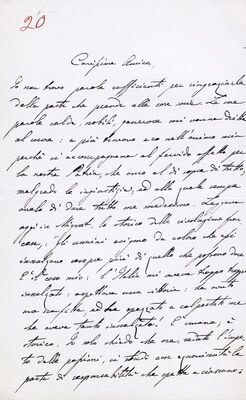 20
Carissima Amica,
Io non trovo parole sufficienti per ringraziarla
della parte che prende alle cose mie. Le sue
parole calde, nobili, generose mi vanno diritte
al cuore: e più trovano eco nell'animo mio
perchè si accompagnano al fervido affetto per
la nostra Patria, che amo al di sopra di tutto,
malgrado le ingiustizie, ed alla quale
di due tutto me medesimo. Leggevo
oggi in Mignet, lo storico della rivoluzione fran
cese: "gli uomini esigono da coloro che essi
innalzano sempre più di quello che possono dare
È il caso mio: l'Italia mi aveva troppo
innalzato; aspettava una vittoria; ha avuto
una sconfitta, ed ha spezzato e calpestato
che aveva tanto innalzato. È umano; è
storico. Io solo chiedo che ora, sedato l'impe
to delle passioni, si studi con equanimità la
parte di responsabilità che spetta a ciascuno: